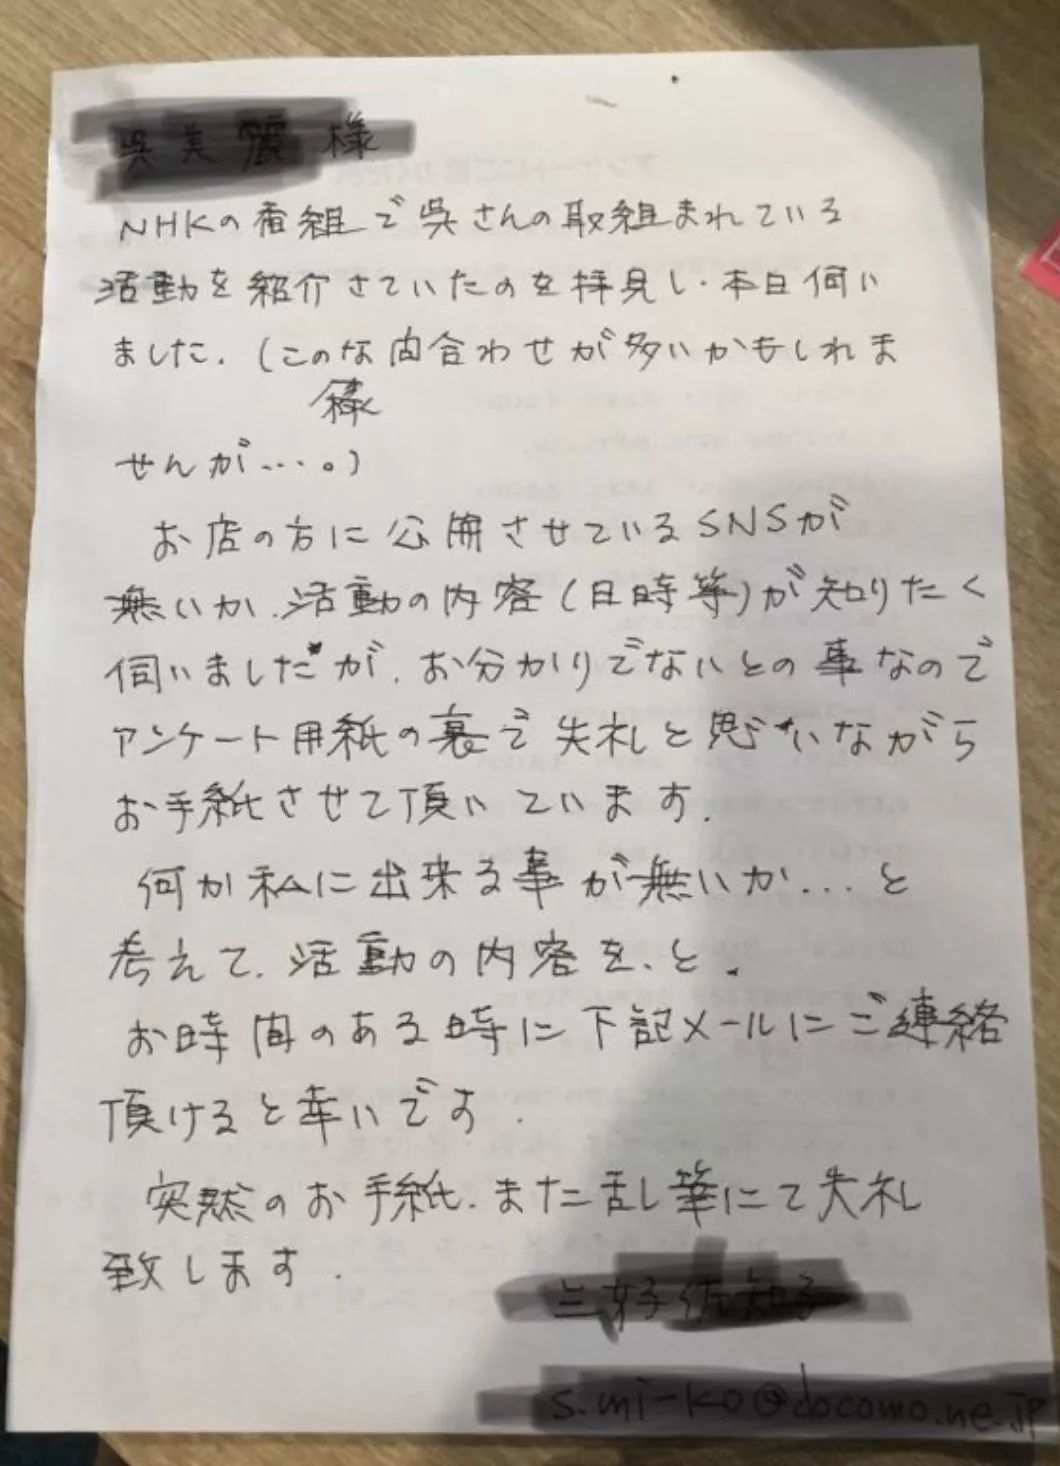 NHKの番組で呉さんの取組まれている
活動を紹介さていたのを拝見し・本日伺い
ました。(このな問合わせが多いかもしれま
様
せんが…。)
お店の方に公開させているSNSが
無いか、活動の内容(日時等)が知りたく
伺いましたが、お分かりでないとの事なので
アンケート用紙の裏で失礼と思いながら
お手紙させて頂いています。
何か私に出来る事が無いか…と
考えて、活動の内容を、と。
お時間のある時に下記メールにご連絡
頂けると幸いです。
突然のお手紙、また乱し筆にて失礼
致します。